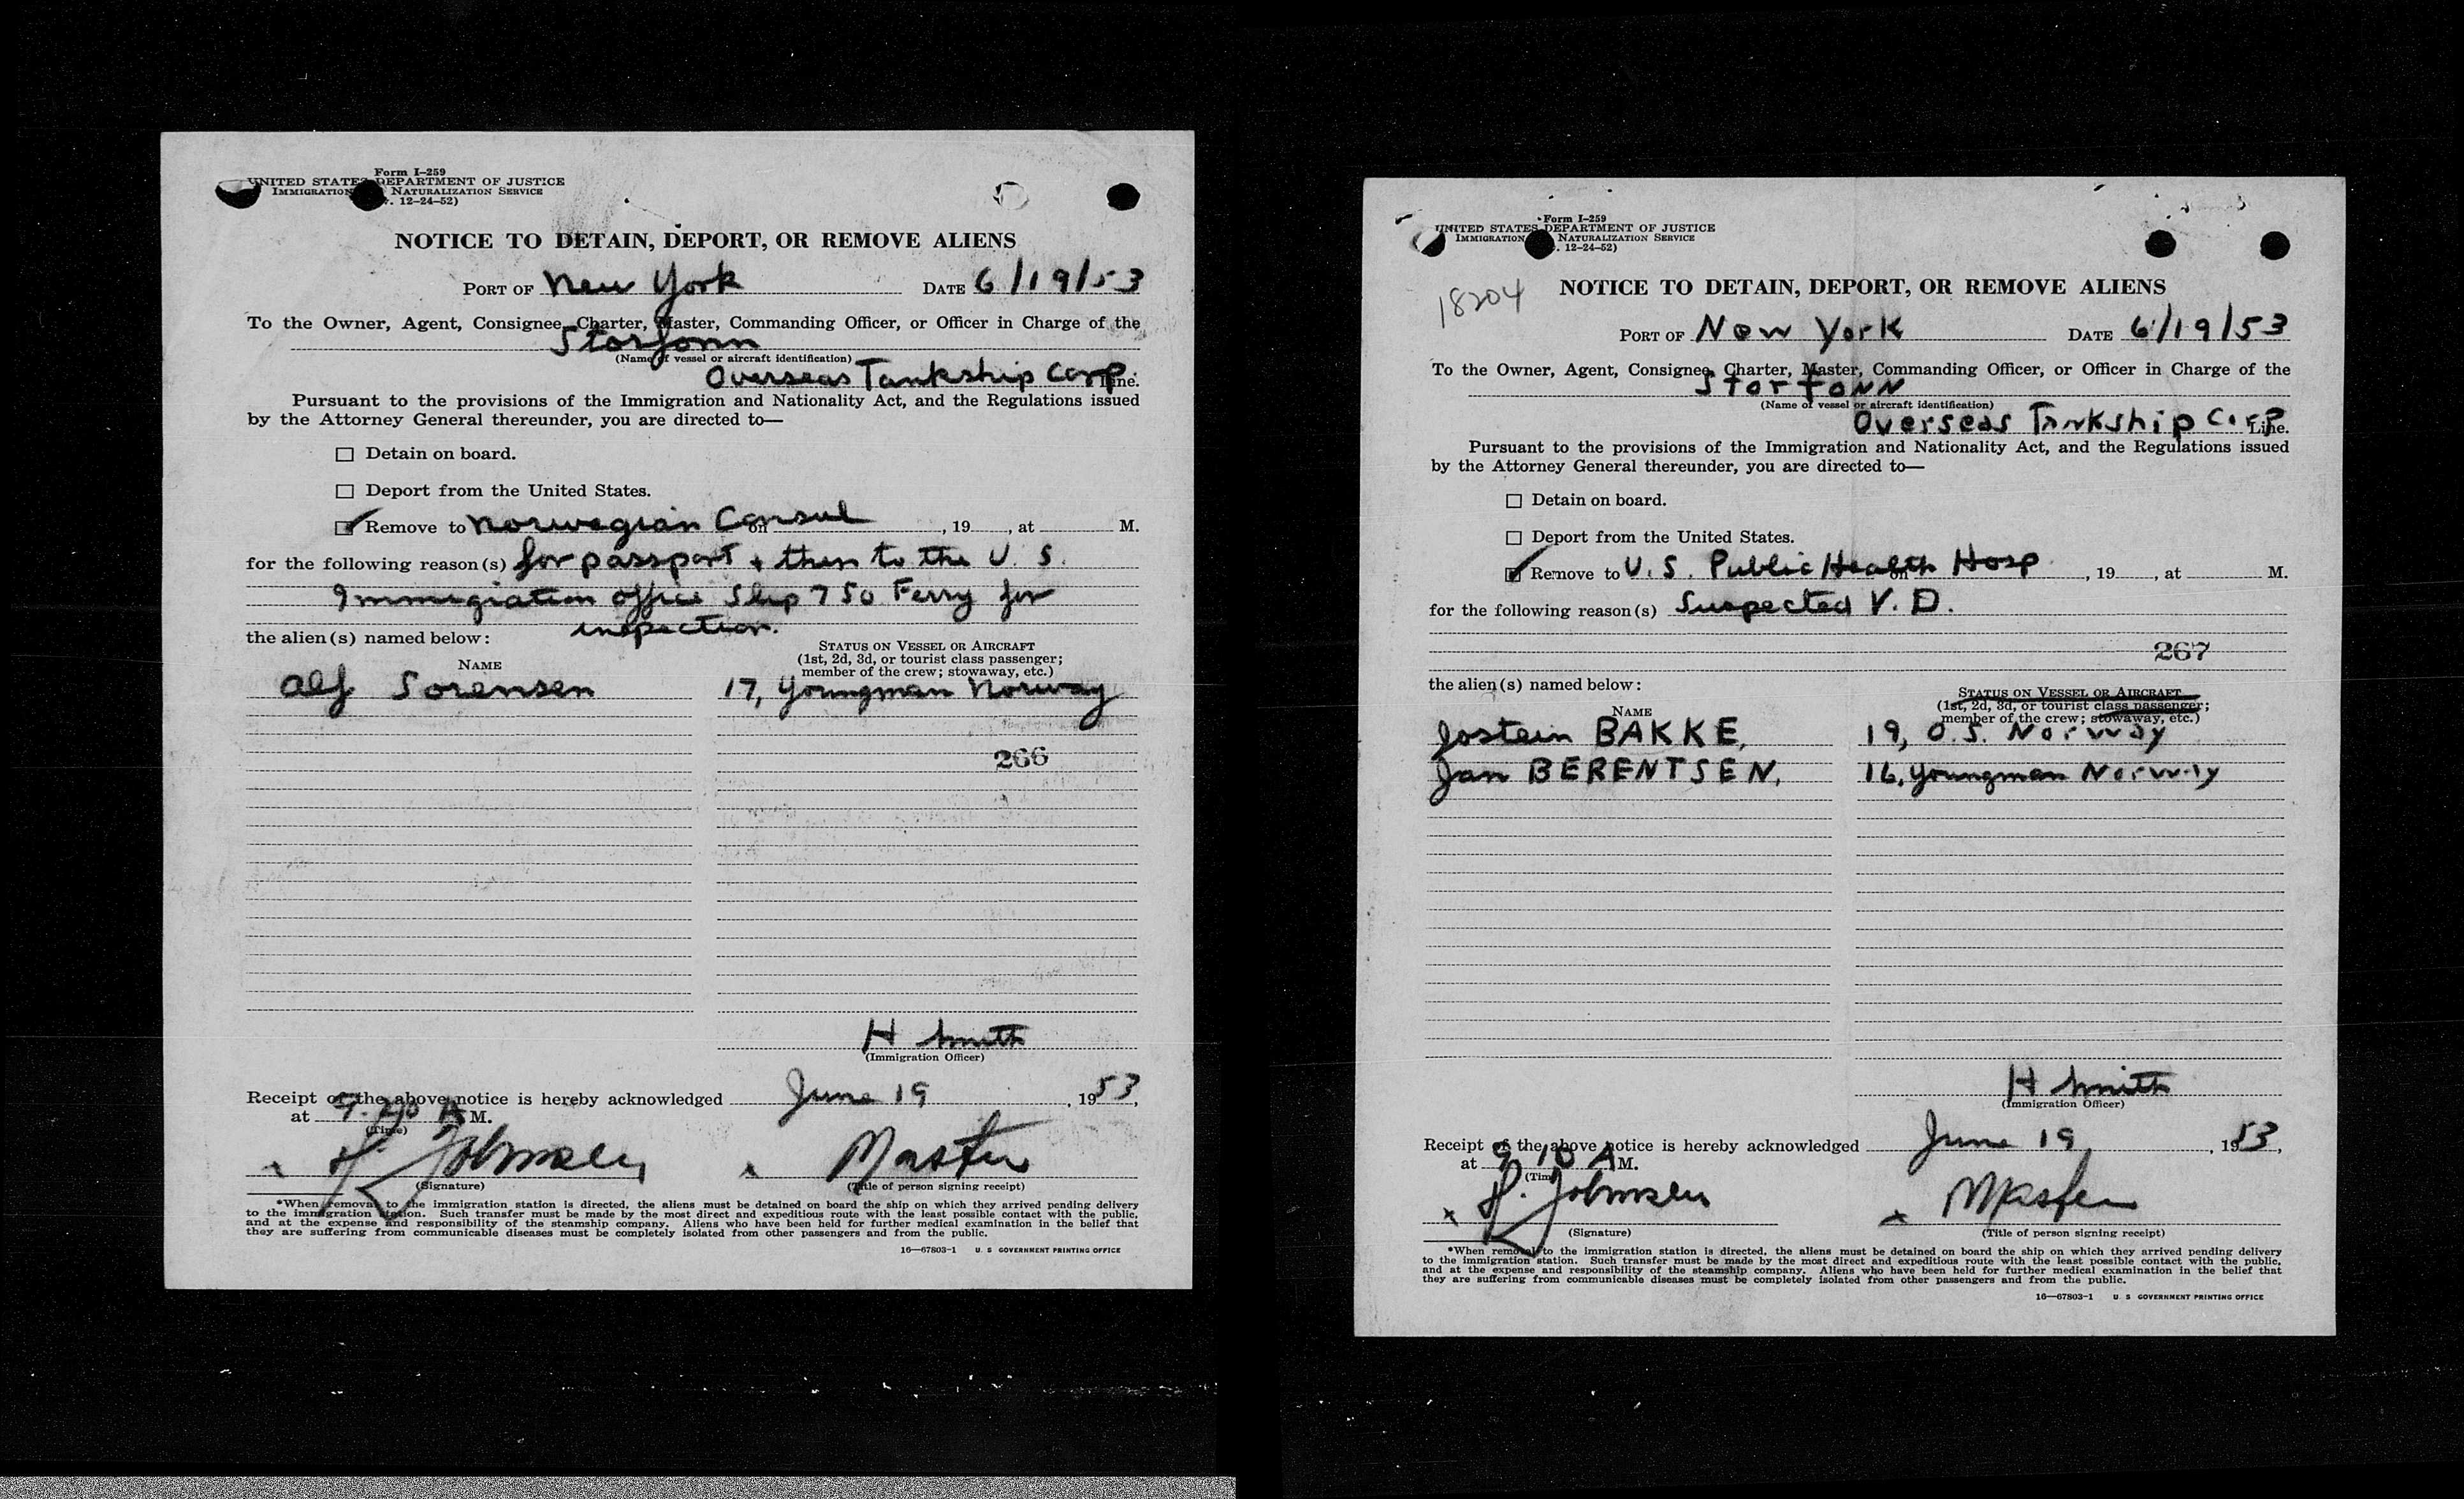 Form I-259
UNITED STATES DEPARTMENT OF JUSTICE
IMMIGRATION NATURALIZATION SERVICE
12-24-52)
NOTICE TO DETAIN, DEPORT, OR REMOVE ALIENS
PORT OF New York DATE 6/19/53
To the Owner, Agent, Consignee, Charter, Master, Commanding Officer, or Officer in Charge of the
Storfonn
(Name of vessel or aircraft identification)
Overseas Tankship Corp Line.
Pursuant to the provisions of the Immigration and Nationality Act, and the Regulations issued
by the Attorney General thereunder, you are directed to—
Detain on board.
Deport from the United States.
Remove to Norwegian Consul on , 19 , at M.
for the following reason(s) for passport + then to the U. S.
Immigration office Slip 7 50 Ferry for
inspection.
the alien(s) named below:
NAME
STATUS ON VESSEL OR AIRCRAFT
(1st, 2d, 3d, or tourist class passenger;
member of the crew; stowaway, etc.)
Alf Sorensen 17, Youngman Norway
266
H Smith
(Immigration Officer)
Receipt of the above notice is hereby acknowledged June 19, 1953,
at 9.20 A M.
(Time)
x H. Johnsen x Master
(Signature) (Title of person signing receipt)
*When removal to the immigration station is directed, the aliens must be detained on board the ship on which they arrived pending delivery
to the immigration station. Such transfer must be made by the most direct and expeditious route with the least possible contact with the public,
and at the expense and responsibility of the steamship company. Aliens who have been held for further medical examination in the belief that
they are suffering from communicable diseases must be completely isolated from other passengers and from the public.
16—67803-1 U. S. GOVERNMENT PRINTING OFFICE
Form I-259
UNITED STATES DEPARTMENT OF JUSTICE
IMMIGRATION NATURALIZATION SERVICE
12-24-52)
18204
NOTICE TO DETAIN, DEPORT, OR REMOVE ALIENS
PORT OF New York DATE 6/19/53
To the Owner, Agent, Consignee, Charter, Master, Commanding Officer, or Officer in Charge of the
Storfonn
(Name of vessel or aircraft identification)
Overseas Tankship Corp Line.
Pursuant to the provisions of the Immigration and Nationality Act, and the Regulations issued
by the Attorney General thereunder, you are directed to—
Detain on board.
Deport from the United States.
Remove to U. S. Public Health Hosp on , 19 , at M.
for the following reason(s) Suspected V. D.
267
the alien(s) named below:
NAME
STATUS ON VESSEL OR AIRCRAFT
(1st, 2d, 3d, or tourist class passenger;
member of the crew; stowaway, etc.)
Jostein BAKKE, 19, O.S. Norway
Jan BERENTSEN, 16, Youngman Norway
H Smith
(Immigration Officer)
Receipt of the above notice is hereby acknowledged June 19, 1953,
at 9 10 A M.
(Time)
x H. Johnsen x Master
(Signature) (Title of person signing receipt)
*When removal to the immigration station is directed, the aliens must be detained on board the ship on which they arrived pending delivery
to the immigration station. Such transfer must be made by the most direct and expeditious route with the least possible contact with the public,
and at the expense and responsibility of the steamship company. Aliens who have been held for further medical examination in the belief that
they are suffering from communicable diseases must be completely isolated from other passengers and from the public.
16—67803-1 U. S. GOVERNMENT PRINTING OFFICE